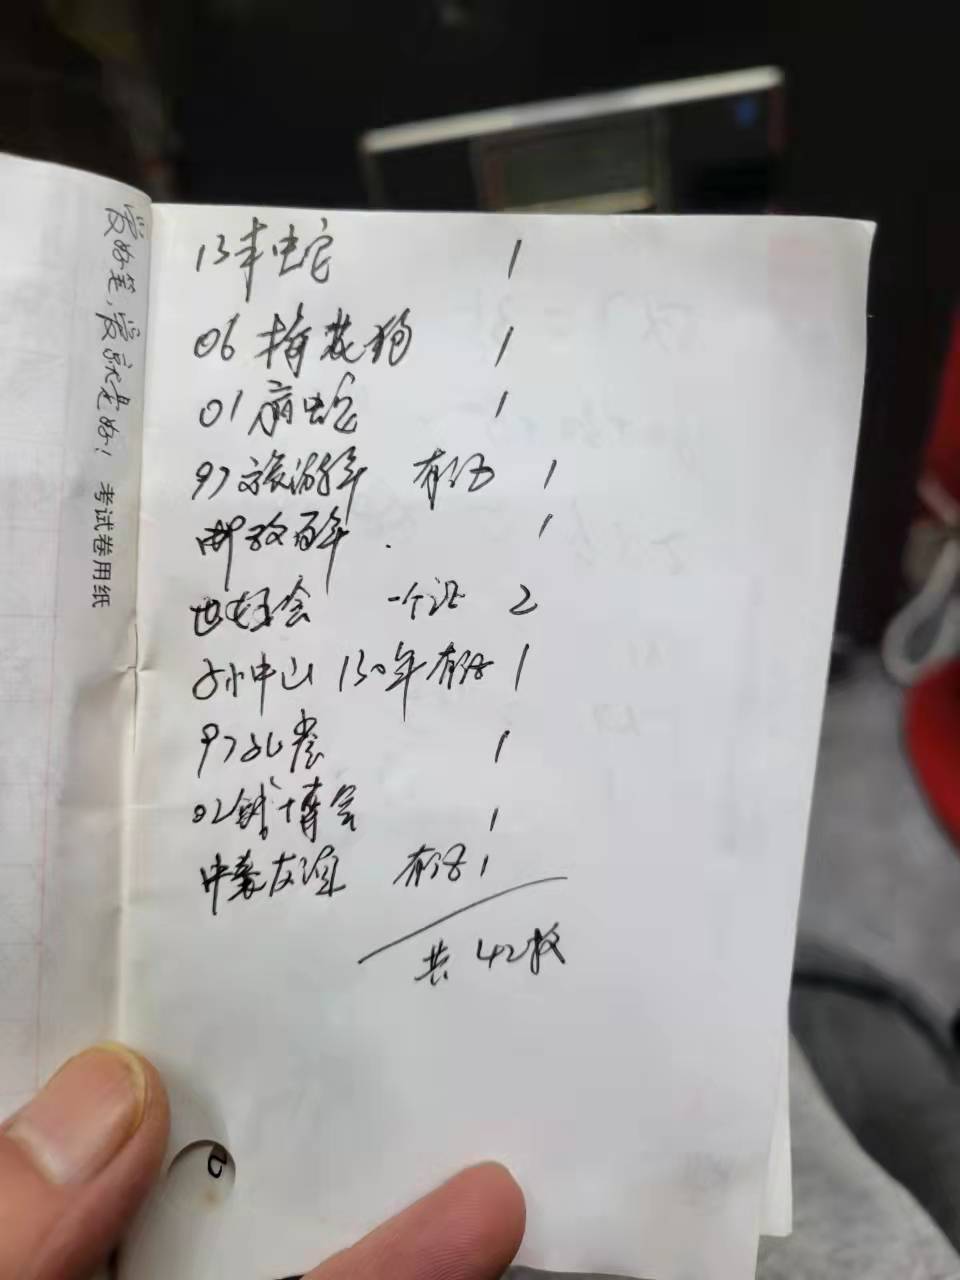 爱好笔,爱就是好!
考试卷用纸
13年蛇 1
06梅花狗 1
01扇蛇 1
97旅游年 有证 1
邮政百年. 1
世妇会 一个证 2
孙中山 130年有证 1
97孔雀 1
02钱博会 1
中泰友谊 有证 1
共 42枚
2